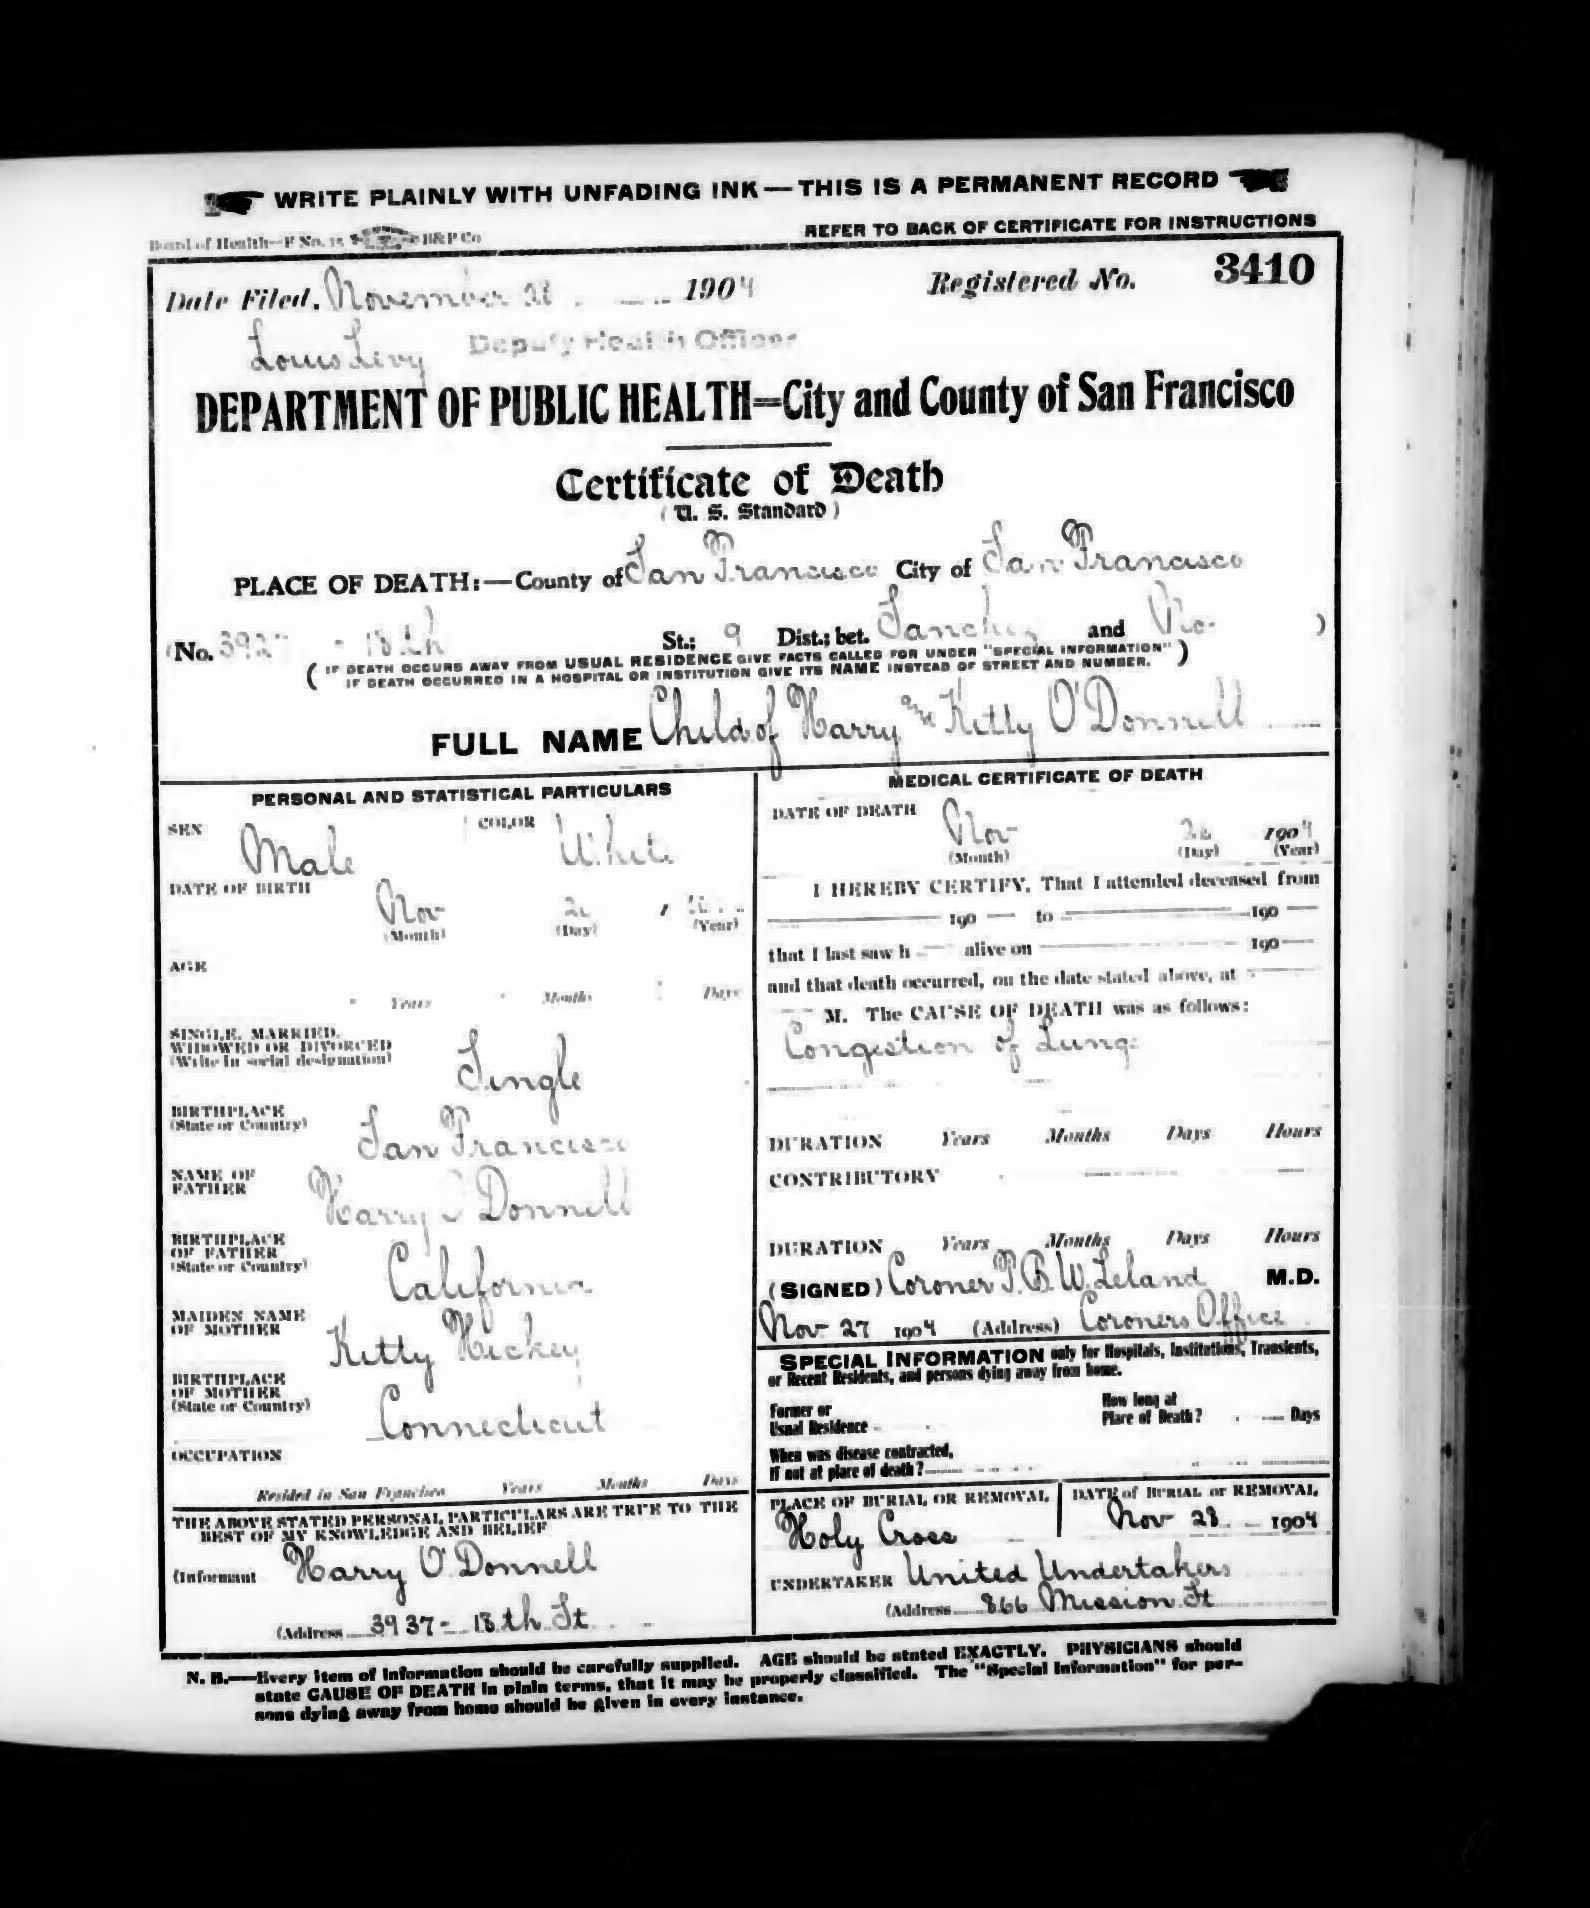 WRITE PLAINLY WITH UNFADING INK—THIS IS A PERMANENT RECORD
Board of Health—F No. 15 H&P Co
REFER TO BACK OF CERTIFICATE FOR INSTRUCTIONS
Date Filed, November 28 1904
Registered No. 3410
Louis Levy Deputy Health Officer
DEPARTMENT OF PUBLIC HEALTH=City and County of San Francisco
Certificate of Death
(U. S. Standard)
PLACE OF DEATH:—County of San Francisco City of San Francisco
(No. - 18th St.; 9 Dist.; bet. Sanchez and No- )
( IF DEATH OCCURS AWAY FROM USUAL RESIDENCE GIVE FACTS CALLED FOR UNDER "SPECIAL INFORMATION"
IF DEATH OCCURRED IN A HOSPITAL OR INSTITUTION GIVE ITS NAME INSTEAD OF STREET AND NUMBER. )
FULL NAME Child of Harry and Kitty O'Donnell
PERSONAL AND STATISTICAL PARTICULARS
SEX Male COLOR White
DATE OF BIRTH Nov
(Month) (Day) (Year)
AGE
Years Months Days
SINGLE, MARRIED,
WIDOWED OR DIVORCED
(Write in social designation) Single
BIRTHPLACE
(State or Country) San Francisco
NAME OF
FATHER Harry O'Donnell
BIRTHPLACE
OF FATHER
(State or Country) California
MAIDEN NAME
OF MOTHER Kitty Hickey
BIRTHPLACE
OF MOTHER
(State or Country) Connecticut
OCCUPATION
Resided in San Francisco Years Months Days
THE ABOVE STATED PERSONAL PARTICULARS ARE TRUE TO THE
BEST OF MY KNOWLEDGE AND BELIEF
(Informant Harry O'Donnell
(Address 3937- 18th St
MEDICAL CERTIFICATE OF DEATH
DATE OF DEATH Nov 1904
(Month) (Day) (Year)
I HEREBY CERTIFY, That I attended deceased from
190 — to 190 —
that I last saw h alive on 190
and that death occurred, on the date stated above, at
M. The CAUSE OF DEATH was as follows:
Congestion of Lungs
DURATION Years Months Days Hours
CONTRIBUTORY
DURATION Years Months Days Hours
(SIGNED) Coroner T.B.W. Leland M.D.
Nov 27 1904 (Address) Coroners Office
SPECIAL INFORMATION only for Hospitals, Institutions, Transients,
or Recent Residents, and persons dying away from home.
Former or
Usual Residence
How long at
Place of Death? Days
When was disease contracted,
If not at place of death?
PLACE OF BURIAL OR REMOVAL
Holy Cross
DATE of BURIAL or REMOVAL
Nov 28 1904
UNDERTAKER United Undertakers
(Address 866 Mission St
N. B.—Every item of information should be carefully supplied. AGE should be stated EXACTLY. PHYSICIANS should
state CAUSE OF DEATH in plain terms, that it may be properly classified. The "Special Information" for per-
sons dying away from home should be given in every instance.